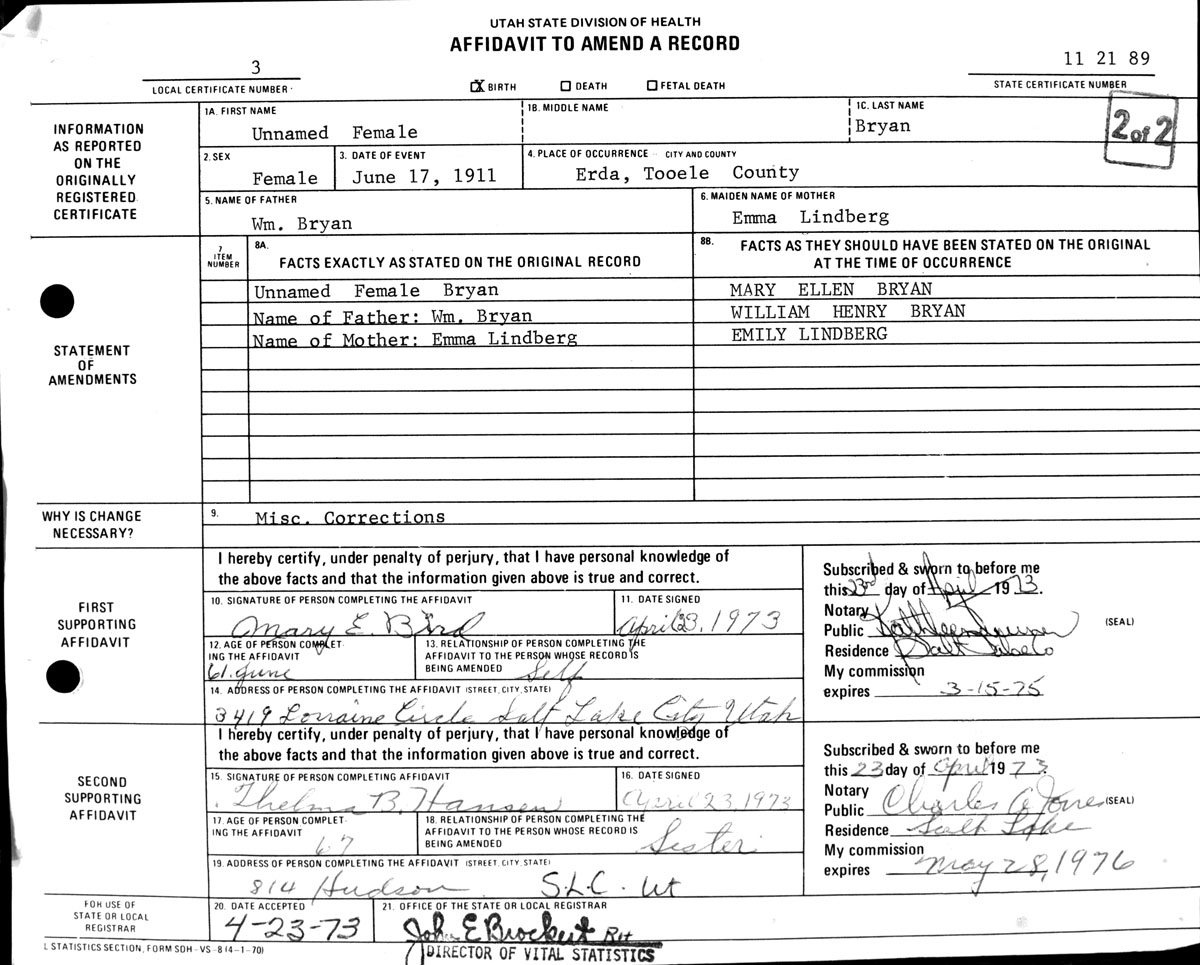 UTAH STATE DIVISION OF HEALTH
AFFIDAVIT TO AMEND A RECORD
3
11 21 89
LOCAL CERTIFICATE NUMBER
X BIRTH DEATH FETAL DEATH
STATE CERTIFICATE NUMBER
INFORMATION AS REPORTED ON THE ORIGINALLY REGISTERED CERTIFICATE
1A. FIRST NAME
Unnamed Female
1B. MIDDLE NAME
1C. LAST NAME
Bryan
2 of 2
2. SEX
Female
3. DATE OF EVENT
June 17, 1911
4. PLACE OF OCCURRENCE CITY AND COUNTY
Erda, Tooele County
5. NAME OF FATHER
Wm. Bryan
6. MAIDEN NAME OF MOTHER
Emma Lindberg
STATEMENT OF AMENDMENTS
7 ITEM NUMBER
8A. FACTS EXACTLY AS STATED ON THE ORIGINAL RECORD
8B. FACTS AS THEY SHOULD HAVE BEEN STATED ON THE ORIGINAL AT THE TIME OF OCCURRENCE
Unnamed Female Bryan
MARY ELLEN BRYAN
Name of Father: Wm. Bryan
WILLIAM HENRY BRYAN
Name of Mother: Emma Lindberg
EMILY LINDBERG
WHY IS CHANGE NECESSARY?
9. Misc. Corrections
FIRST SUPPORTING AFFIDAVIT
I hereby certify, under penalty of perjury, that I have personal knowledge of
the above facts and that the information given above is true and correct.
10. SIGNATURE OF PERSON COMPLETING THE AFFIDAVIT
Mary E. Bird
11. DATE SIGNED
April 23, 1973
12. AGE OF PERSON COMPLETING THE AFFIDAVIT
61. June
13. RELATIONSHIP OF PERSON COMPLETING THE AFFIDAVIT TO THE PERSON WHOSE RECORD IS BEING AMENDED
Self
14. ADDRESS OF PERSON COMPLETING THE AFFIDAVIT (STREET, CITY, STATE)
3419 Lorraine Circle Salt Lake City Utah
Subscribed & sworn to before me
this 23rd day of April 1973.
Notary
Public (SEAL)
Residence Salt Lake Co
My commission
expires 3-15-75
SECOND SUPPORTING AFFIDAVIT
I hereby certify, under penalty of perjury, that I have personal knowledge of
the above facts and that the information given above is true and correct.
15. SIGNATURE OF PERSON COMPLETING AFFIDAVIT
Thelma B. Hansen
16. DATE SIGNED
April 23, 1973
17. AGE OF PERSON COMPLETING THE AFFIDAVIT
67
18. RELATIONSHIP OF PERSON COMPLETING THE AFFIDAVIT TO THE PERSON WHOSE RECORD IS BEING AMENDED
Sister
19. ADDRESS OF PERSON COMPLETING THE AFFIDAVIT (STREET, CITY, STATE)
814 Hudson S.L.C. Ut
Subscribed & sworn to before me
this 23 day of April 1973.
Notary
Public Charles A Jones (SEAL)
Residence Salt Lake
My commission
expires May 28, 1976
FOR USE OF STATE OR LOCAL REGISTRAR
20. DATE ACCEPTED
4-23-73
21. OFFICE OF THE STATE OR LOCAL REGISTRAR
John E Brockert
DIRECTOR OF VITAL STATISTICS
L STATISTICS SECTION, FORM SDH-VS-8 (4-1-70)